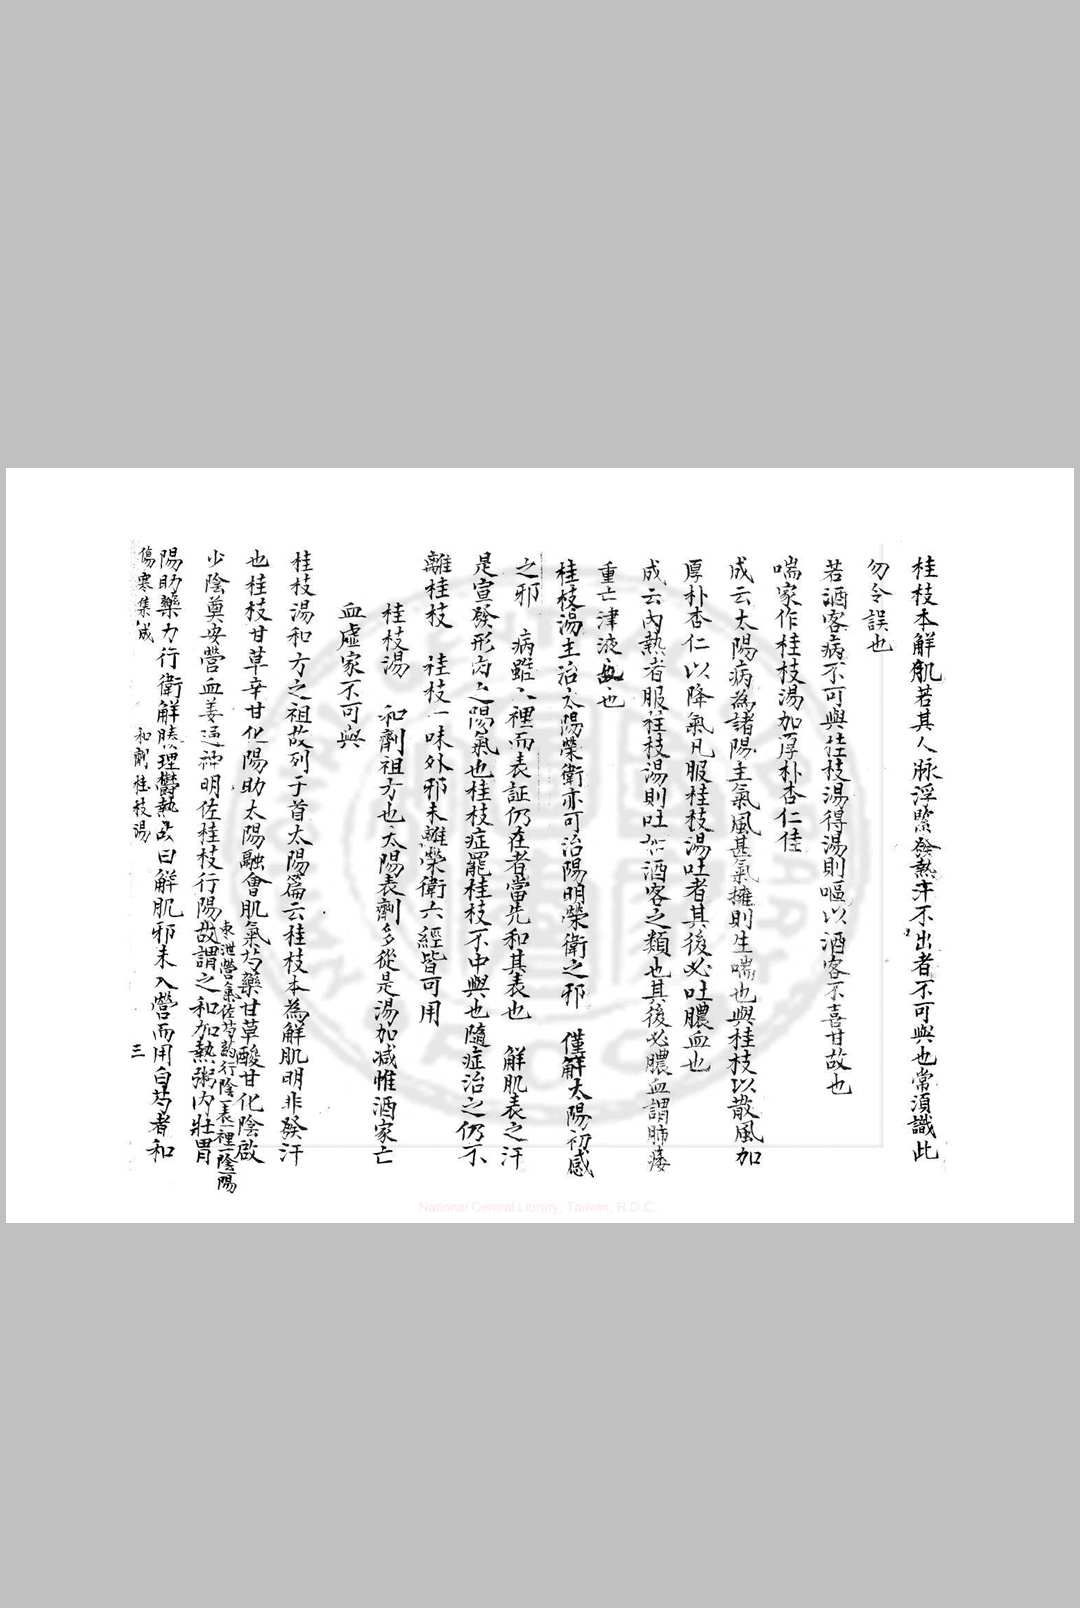 桂枝本解肌若其人脉浮緊發熱汗不出者不可與也常須識此
勿令誤也
若酒客病不可與桂枝湯得湯則嘔以酒客不喜甘故也
喘家作桂枝湯加厚朴杏仁佳
成云太陽病為諸陽主氣風甚氣擁則生喘也與桂枝以散風加
厚朴杏仁以降氣凡服桂枝湯吐者其後必吐膿血也
成云內熱者服桂枝湯則吐如酒客之類也其後必膿血謂肺痿
重亡津液也
桂枝湯主治太陽榮衛亦可治陽明榮衛之邪 僅解太陽初感
之邪 病雖入裡而表証仍在者當先和其表也 解肌表之汗
是宣發形身之陽氣也桂枝症罷桂枝不中與也隨症治之仍不
離桂枝 桂枝一味外邪未離榮衛六經皆可用
桂枝湯 和劑祖方也太陽表劑多從是湯加減惟酒家亡
血虛家不可與
桂枝湯和方之祖故列于首太陽篇云桂枝本為解肌明非發汗
也桂枝甘草辛甘化陽助太陽融會肌氣芍藥甘草酸甘化陰啟
東泄營氣佐芍藥行陰一表一裡一陰一陽
少陰奠安營血姜通神明佐桂枝行陽故謂之和加熱粥內壯胃
陽助藥力行衛解腠理鬱熱故曰解肌邪未入營而用白芍者和
傷寒集成 和劑桂枝湯 三
National Central Library, Taiwan, R.O.C.